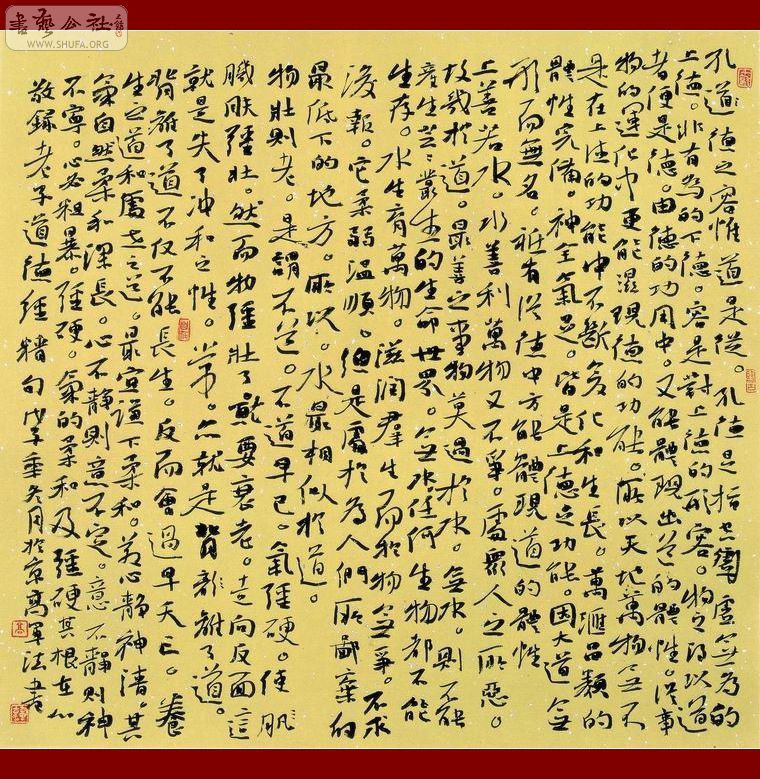 書藝公社
WWW.SHUFA.ORG
孔道德之容惟道是從。孔德是指空洞虛無為的
上德。非有為的下德。容是對上德的形容。物之得以道
者便是德。由德的功用中。又能體現出道的體性。從事
物的運化中更能混現德的功能。所以天地萬物無不
是在上德的功能中不斷變化和生長。萬滙品類的
體性完備。神全氣足。皆是上德之功能。因大道無
形而無名。祇有從德中方能體現道的體性
上善若水。水善利萬物又不爭。處眾人之所惡。
故幾於道。最善之事物莫過於水。無水。則不能
產生芸芸叢生的生命世界。無水任何生物都不能
生存。水生育萬物。滋潤羣生而於物無爭。不求
後報。它柔弱溫順。總是處於為人們所鄙棄的
最低下的地方。所以。水最相似於道。
物壯則老。是謂不道。不道早已。氣強硬。使肌
職肤強壯。然而物強壯了就要衰老。走向反面這
就是失了冲和之性。当常。亦就是背離了道。
背離了道不仅不能長生。反而會過早夭亡。養
生之道和處世之道。最宜謙下柔和。若心靜神清。其
氣自然柔和深長。心不静則意不定。意不靜則神
不寧。心必粗暴。強硬。氣的柔和及強硬其根在心
敬録老子道德經精句戊子年冬月於京高軍法書